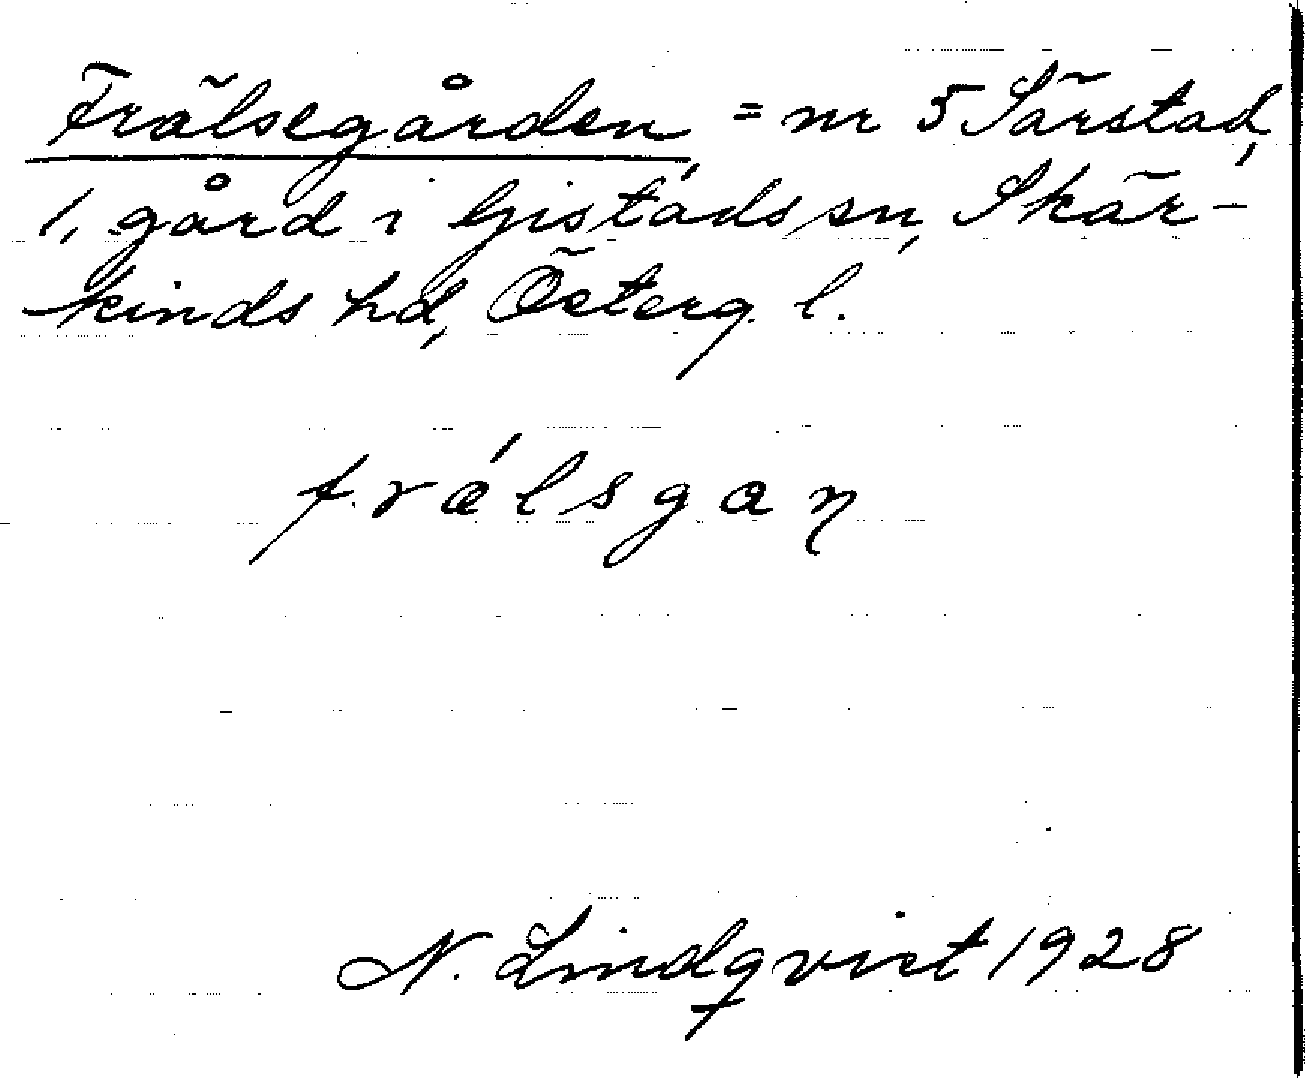 Frälsegården, = nr 5 Särstad,
1, gård i Gistads sn, Skär-
kinds hd, Österg. l.
frálsgaṇ
N. Lindqvist 1928